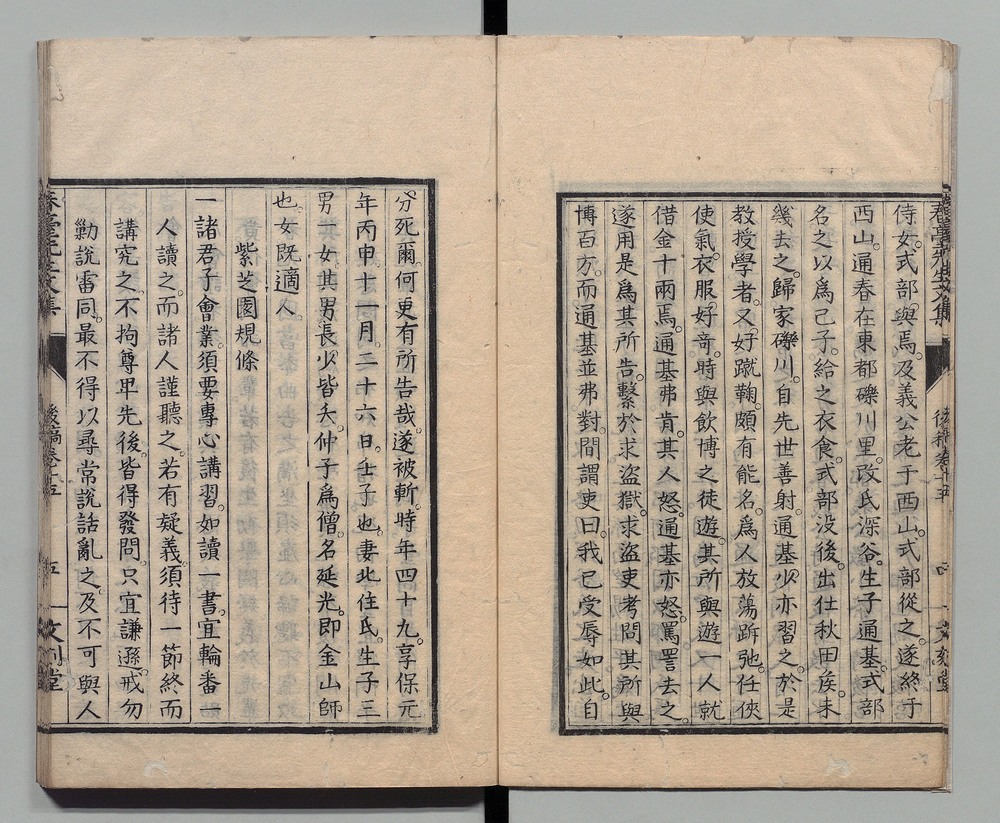 侍女式部與焉。及義公老于西山。式部從之。遂終于
西山。通春在東都礫川里。改氏深谷。生子通基。式部
名之以爲己子。給之衣食。式部没後。出仕秋田侯。未
幾去之。歸家礫川。自先世善射。通基少亦習之。於是
教授學者。又好蹴鞠。頗有能名。爲人放蕩跅弛。任俠
使氣。衣服好奇。時與飲博之徒遊。其所與遊一人就
借金十兩焉。通基弗肯。其人怒。通基亦怒。罵詈去之。
遂用是爲其所告。繫於求盗獄。求盗吏考問其所與
博百方。而通基並弗對。間謂吏曰。我已受辱如此。自
分死爾。何更有所告哉。遂被斬。時年四十九。享保元
年丙申。十一月。二十六日。壬子也。妻北住氏。生子三
男一女。其男長少皆夭。仲子爲僧。名延光。即金山師
也。女既適人。
紫芝園規條
一諸君子會業。須要專心講習。如讀一書。宜輪番一
人讀之。而諸人謹聽之。若有疑義。須待一節終而
講究之。不拘尊卑先後。皆得發問。只宜謙遜。戒勿
勦說雷同。最不得以尋常說話亂之。及不可與人
春臺先生文集
後稿卷十五
四
文刻堂
五